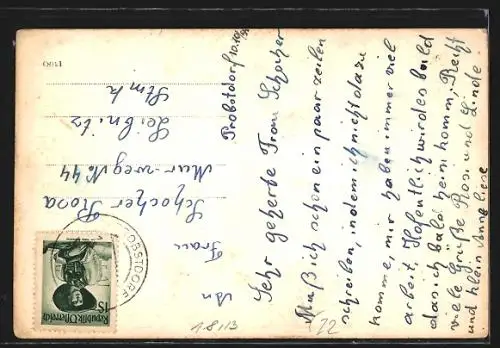 Probstdorf
Sehr geherte Frau Schocher
Muß ich schon ein paar zeilen
schreiben, indem ich nicht dazu
komme, mir haben immer viel
arbeit. Hofentlich wird es bald
das ich bald heim komm, Recht
viele Grüße Rosi und Linde
und klein Anneliese
An
Frau
Schocher Rosa
Murweg No 44
Leibnitz
Stmk
PROBSTDORF
1 S
Republik Österreich
1.8/13
72